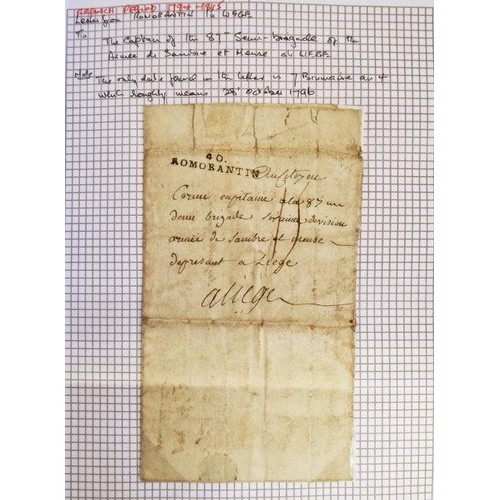 FRENCH PERIOD 1794-1815
Letter from ROMORANTIN to LIEGE
To The Captain of the 87e Demi-brigade of the
Armee de Sambre et Meuse at LIEGE.
Note The only date found in the letter is 7 Brumaire an 4
which roughly means 28th October 1796
40.
ROMORANTIN
Au Citoyen
capitaine a la 87 me
demi brigade division
armée de Sambre et meuse
a Liege
a liege